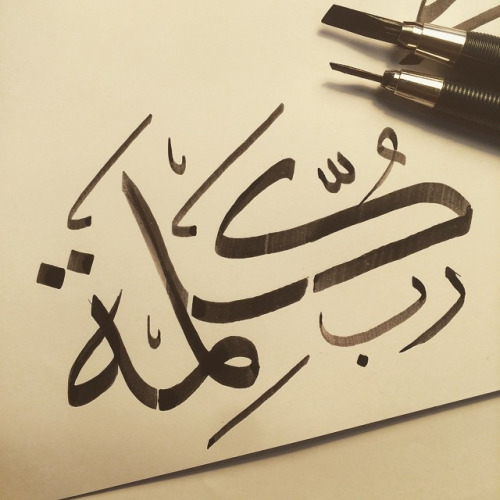 رُبَّ كَلِمَة